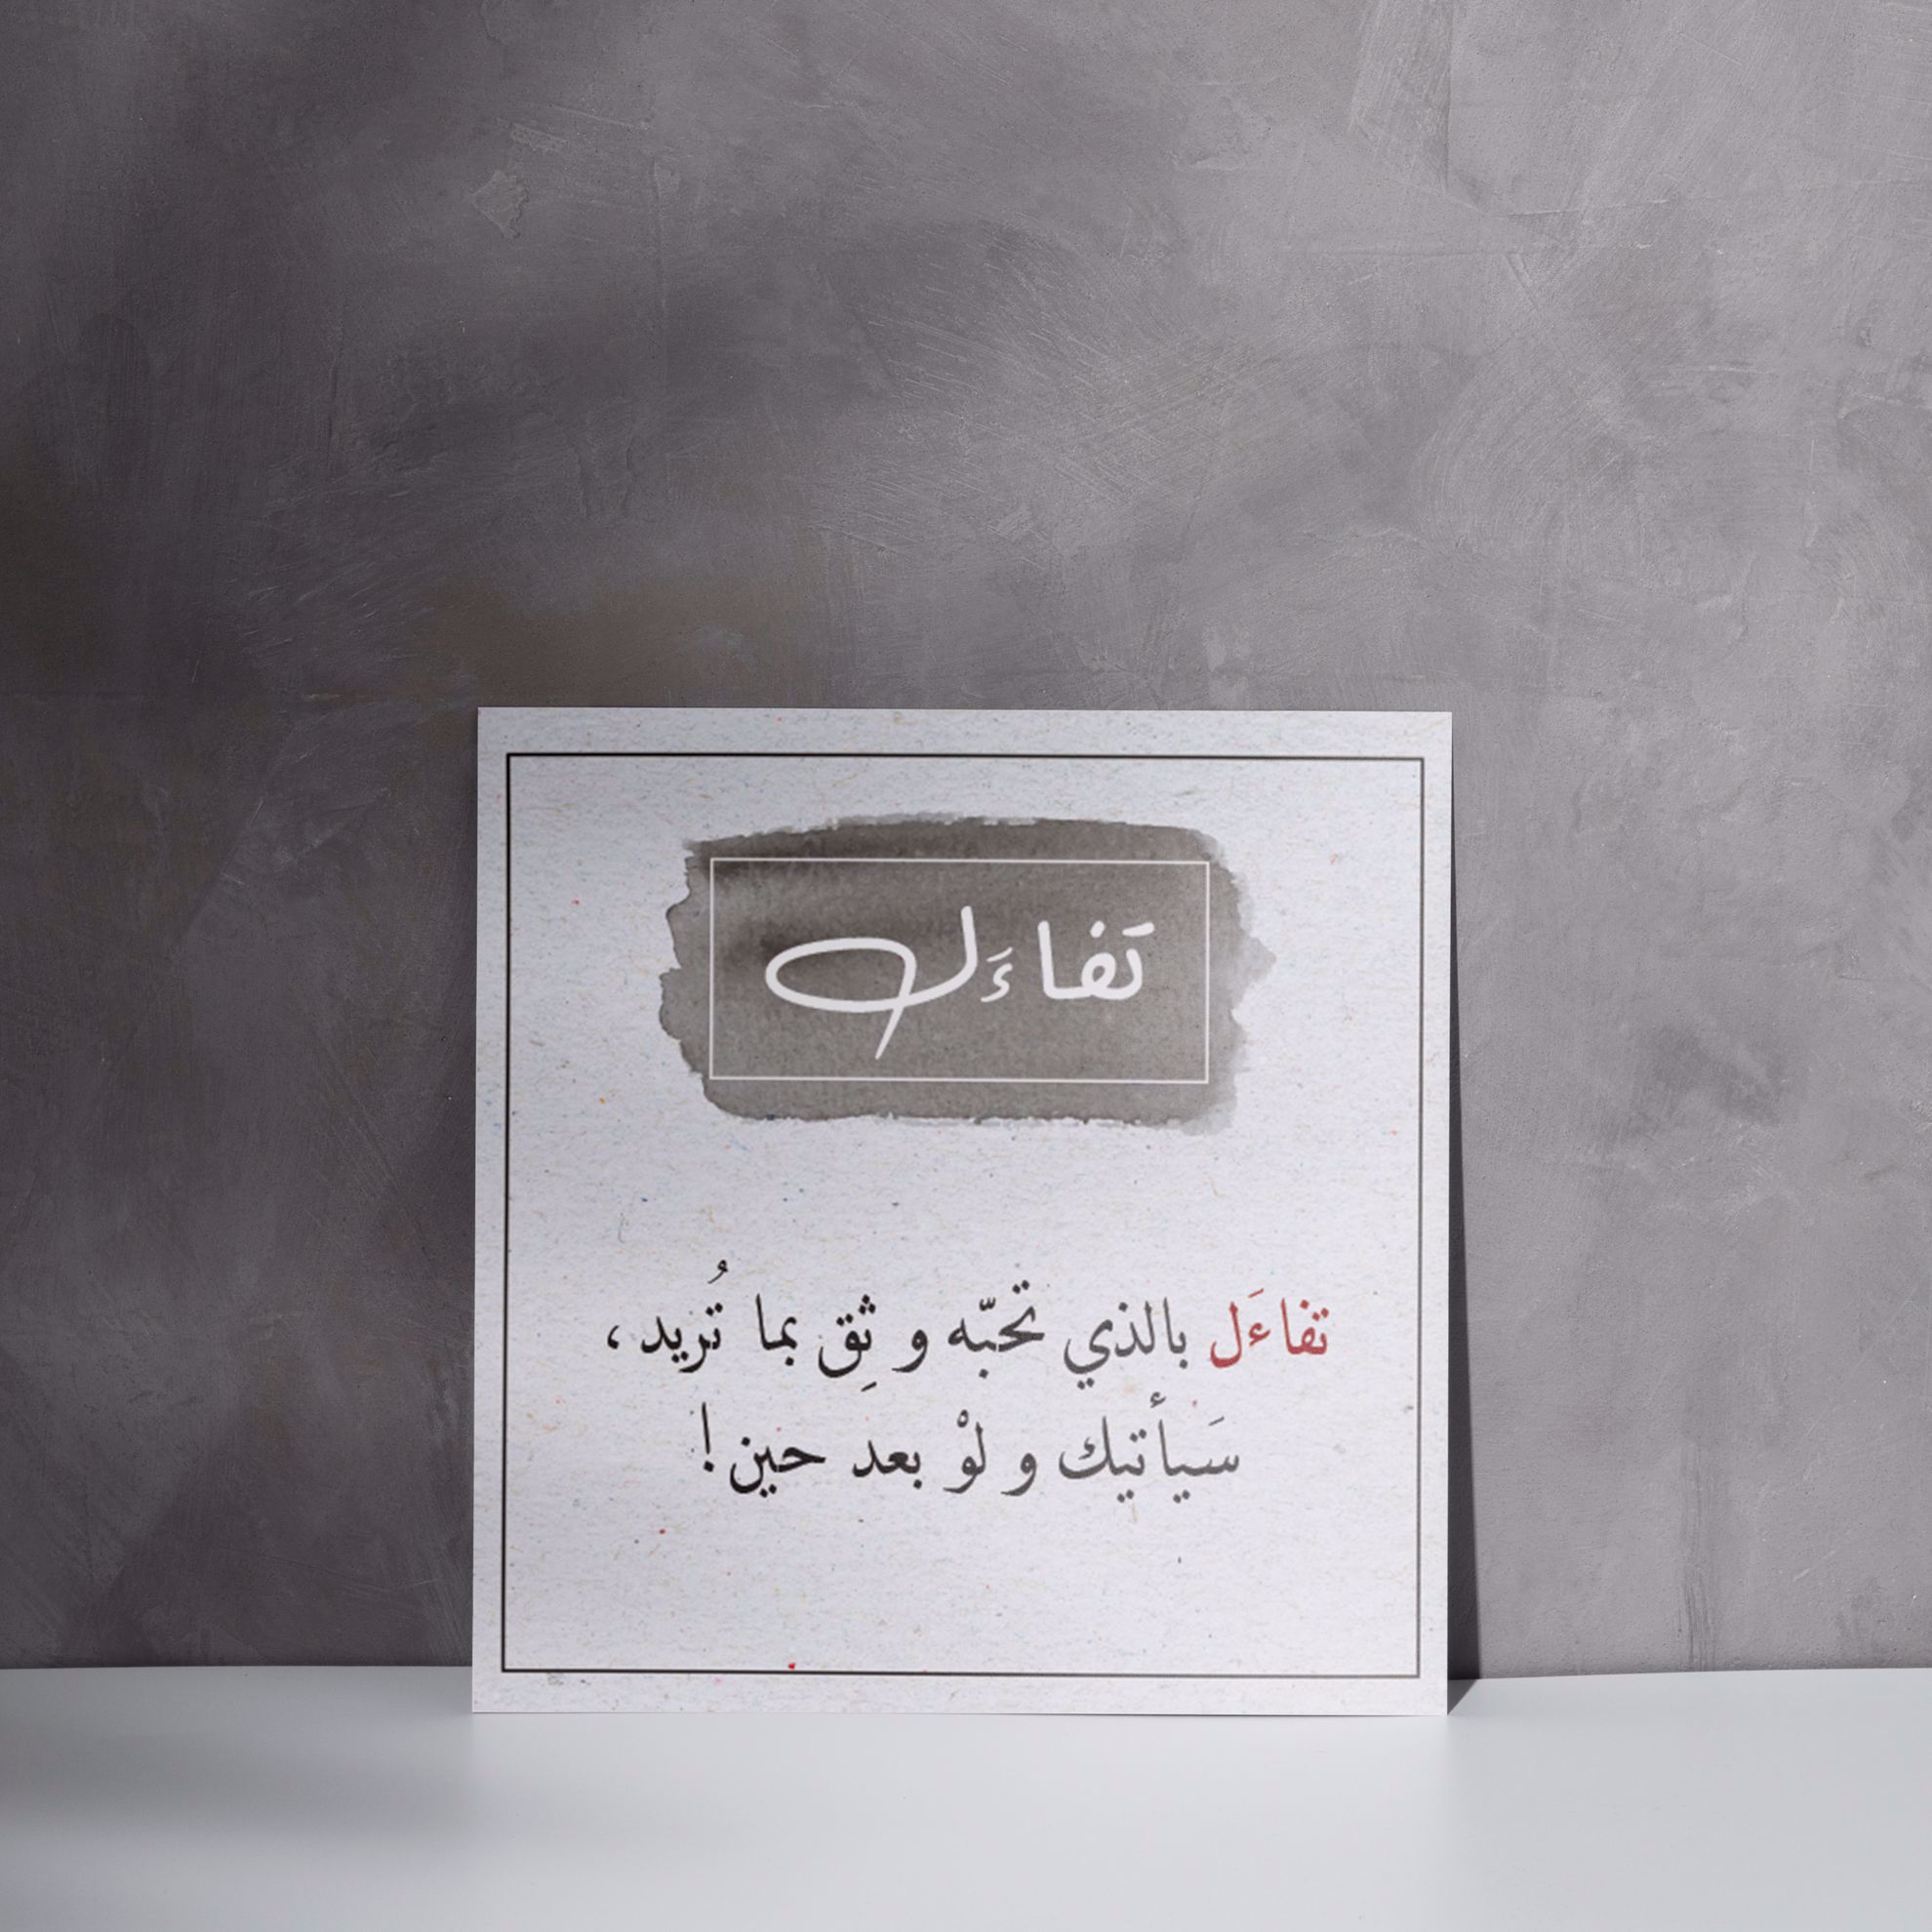 تَفاءَل
تفاءَل بالذي تحبّه و ثِق بما تُريد،
سَيأتيك و لوْ بعد حين!